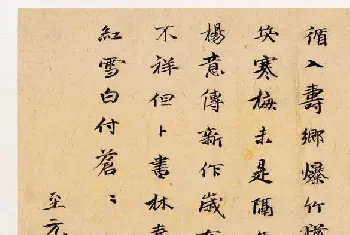 循入壽鄉爆竹
寒梅未是隔
楊意傳新作歲
不祥但卜書林
紅雪白付蒼〻
至元